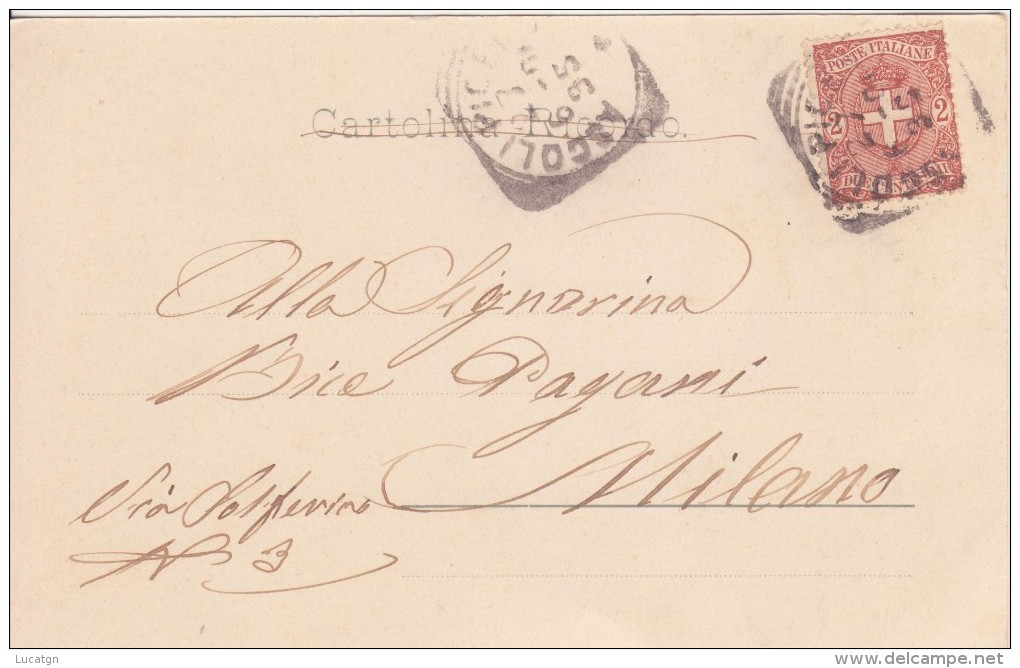 POSTE ITALIANE
2 2
Cartolina Ricordo.
ASCOLI
Alla Signorina
Bice Pagani
Milano
Via Solferino
N 3
Lucatgn
delcampe.net